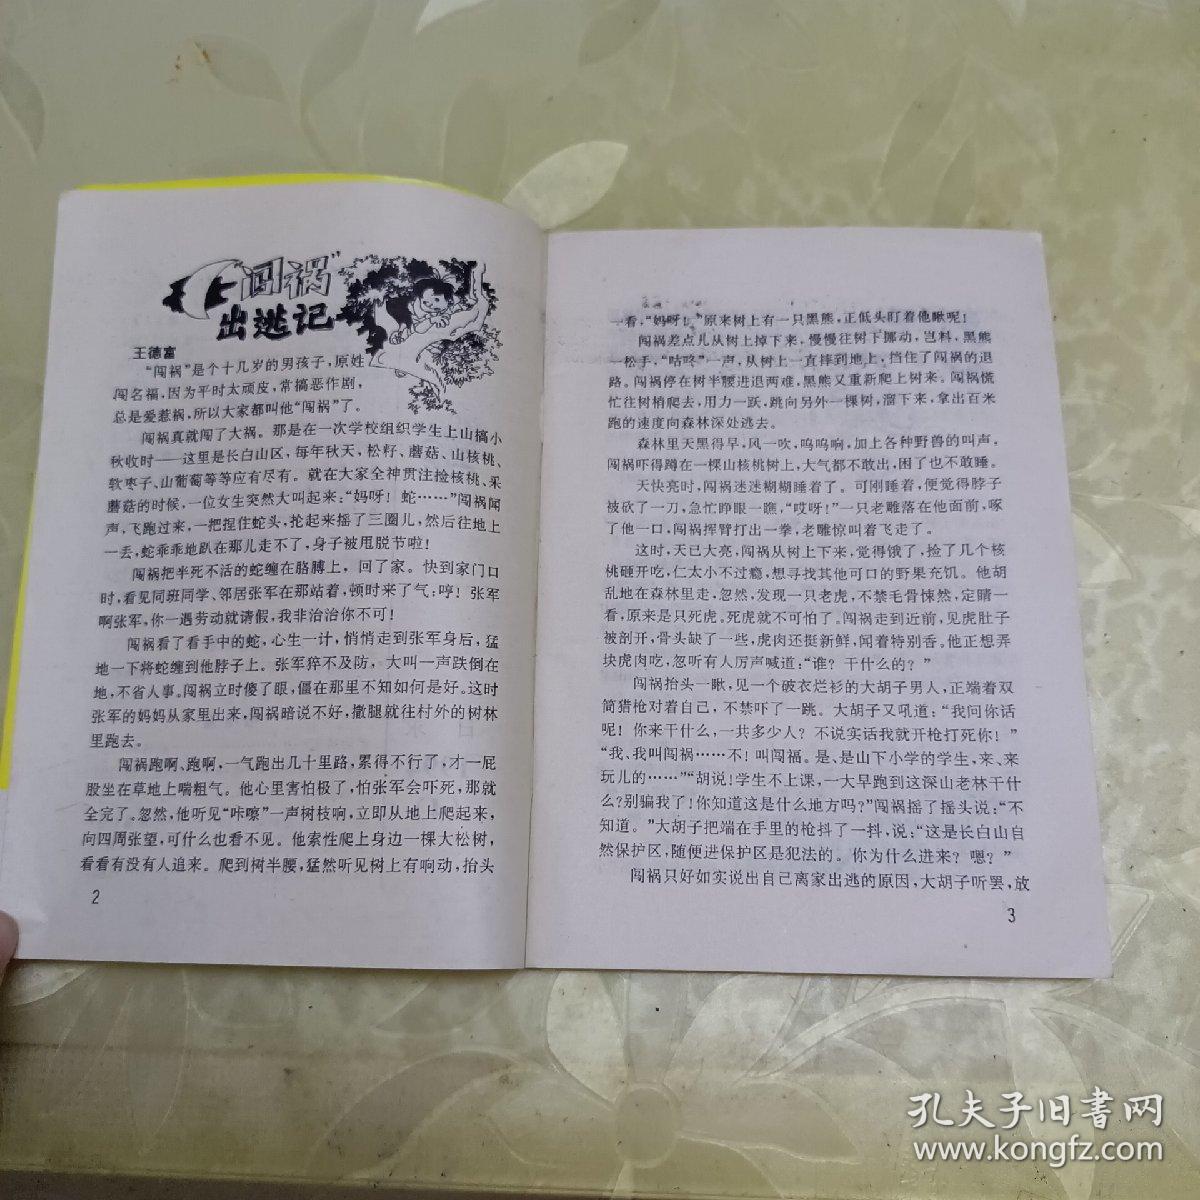 “闯祸”
出逃记
王德富
“闯祸”是个十几岁的男孩子，原姓
闯名福，因为平时太顽皮，常搞恶作剧，
总是爱惹祸，所以大家都叫他“闯祸”了。
闯祸真就闯了大祸。那是在一次学校组织学生上山搞小
秋收时——这里是长白山区，每年秋天，松籽、蘑菇、山核桃、
软枣子、山葡萄等等应有尽有。就在大家全神贯注捡核桃、采
蘑菇的时候，一位女生突然大叫起来：“妈呀！蛇……”闯祸闻
声，飞跑过来，一把捏住蛇头，抡起来摇了三圈儿，然后往地上
一丢，蛇乖乖地趴在那儿走不了，身子被甩脱节啦！
闯祸把半死不活的蛇缠在胳膊上，回了家。快到家门口
时，看见同班同学、邻居张军在那站着，顿时来了气：哼！张军
啊张军，你一遇劳动就请假，我非治治你不可！
闯祸看了看手中的蛇，心生一计，悄悄走到张军身后，猛
地一下将蛇缠到他脖子上。张军猝不及防，大叫一声跌倒在
地，不省人事。闯祸立时傻了眼，僵在那里不知如何是好。这时
张军的妈妈从家里出来，闯祸暗说不好，撒腿就往村外的树林
里跑去。
闯祸跑啊、跑啊，一气跑出几十里路，累得不行了，才一屁
股坐在草地上喘粗气。他心里害怕极了，怕张军会吓死，那就
全完了。忽然，他听见“咔嚓”一声树枝响，立即从地上爬起来，
向四周张望，可什么也看不见。他索性爬上身边一棵大松树，
看看有没有人追来。爬到树半腰，猛然听见树上有响动，抬头
2
一看，“妈呀！”原来树上有一只黑熊，正低头盯着他瞅呢！
闯祸差点儿从树上掉下来，慢慢往树下挪动，岂料，黑熊
一松手，“咕咚”一声，从树上一直摔到地上，挡住了闯祸的退
路。闯祸停在树半腰进退两难，黑熊又重新爬上树来。闯祸慌
忙往树梢爬去，用力一跃，跳向另外一棵树，溜下来，拿出百米
跑的速度向森林深处逃去。
森林里天黑得早，风一吹，呜呜响，加上各种野兽的叫声。
闯祸吓得蹲在一棵山核桃树上，大气都不敢出，困了也不敢睡。
天快亮时，闯祸迷迷糊糊睡着了。可刚睡着，便觉得脖子
被砍了一刀，急忙睁眼一瞧，“哎呀！”一只老雕落在他面前，啄
了他一口，闯祸挥臂打出一拳，老雕惊叫着飞走了。
这时，天已大亮，闯祸从树上下来，觉得饿了，捡了几个核
桃砸开吃，仁太小不过瘾，想寻找其他可口的野果充饥。他胡
乱地在森林里走，忽然，发现一只老虎，不禁毛骨悚然，定睛一
看，原来是只死虎。死虎就不可怕了。闯祸走到近前，见虎肚子
被剖开，骨头缺了一些，虎肉还挺新鲜，闻着特别香。他正想弄
块虎肉吃，忽听有人厉声喊道：“谁？干什么的？”
闯祸抬头一瞅，见一个破衣烂衫的大胡子男人，正端着双
筒猎枪对着自己，不禁吓了一跳。大胡子又吼道：“我问你话
呢！你来干什么，一共多少人？不说实话我就开枪打死你！”
“我、我叫闯祸……不！叫闯福。是、是山下小学的学生，来、来
玩儿的……”“胡说！学生不上课，一大早跑到这深山老林干什
么？别骗我了！你知道这是什么地方吗？”闯祸摇了摇头说：“不
知道。”大胡子把端在手里的枪抖了一抖，说：“这是长白山自
然保护区，随便进保护区是犯法的。你为什么进来？嗯？”
闯祸只好如实说出自己离家出逃的原因，大胡子听罢，放
3
孔夫子旧书网
www.kongfz.com